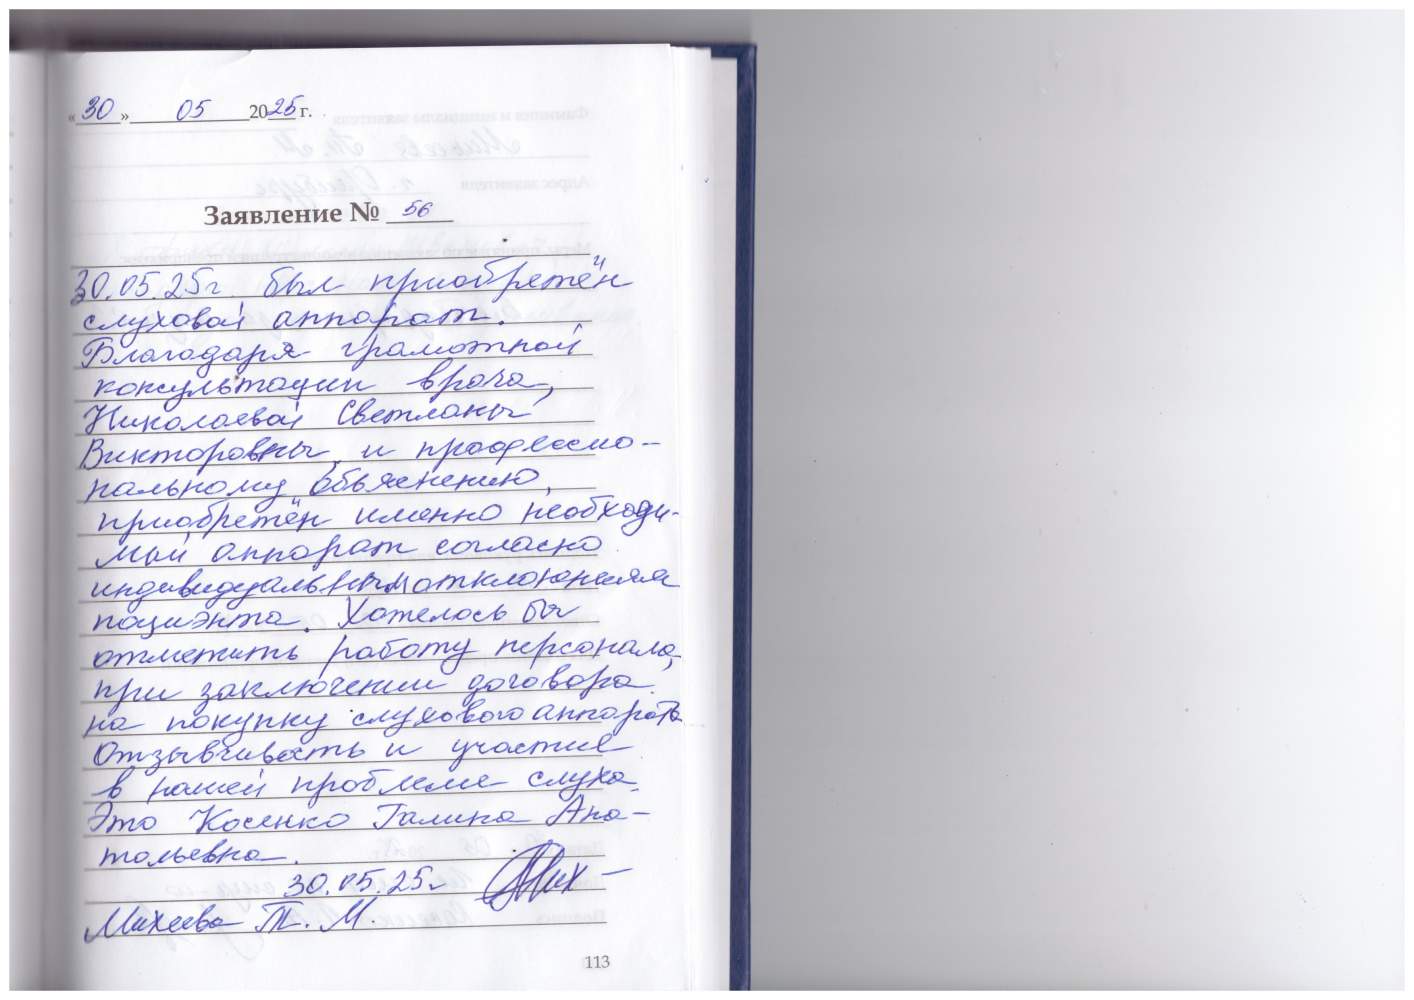 «30» 05 2025 г.
Заявление № 56
30.05.25г был приобретён
слуховой аппарат.
Благодаря грамотной
консультации врача,
Николаевой Светланы
Викторовны и профессио-
нальному объяснению,
приобретён именно необходи-
мый аппарат согласно
индивидуальным отклонениям
пациэнта. Хотелось бы
отметить работу персонала,
при заключении договора
на покупку слухового аппарата
Отзывчивость и участие
в нашей проблеме слуха.
Это Косенко Галина Ана-
тольевна.
30.05.25г
Михеева Т. М.
113